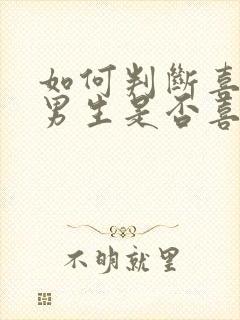 如何判斷喜
男生是否喜
不明就里